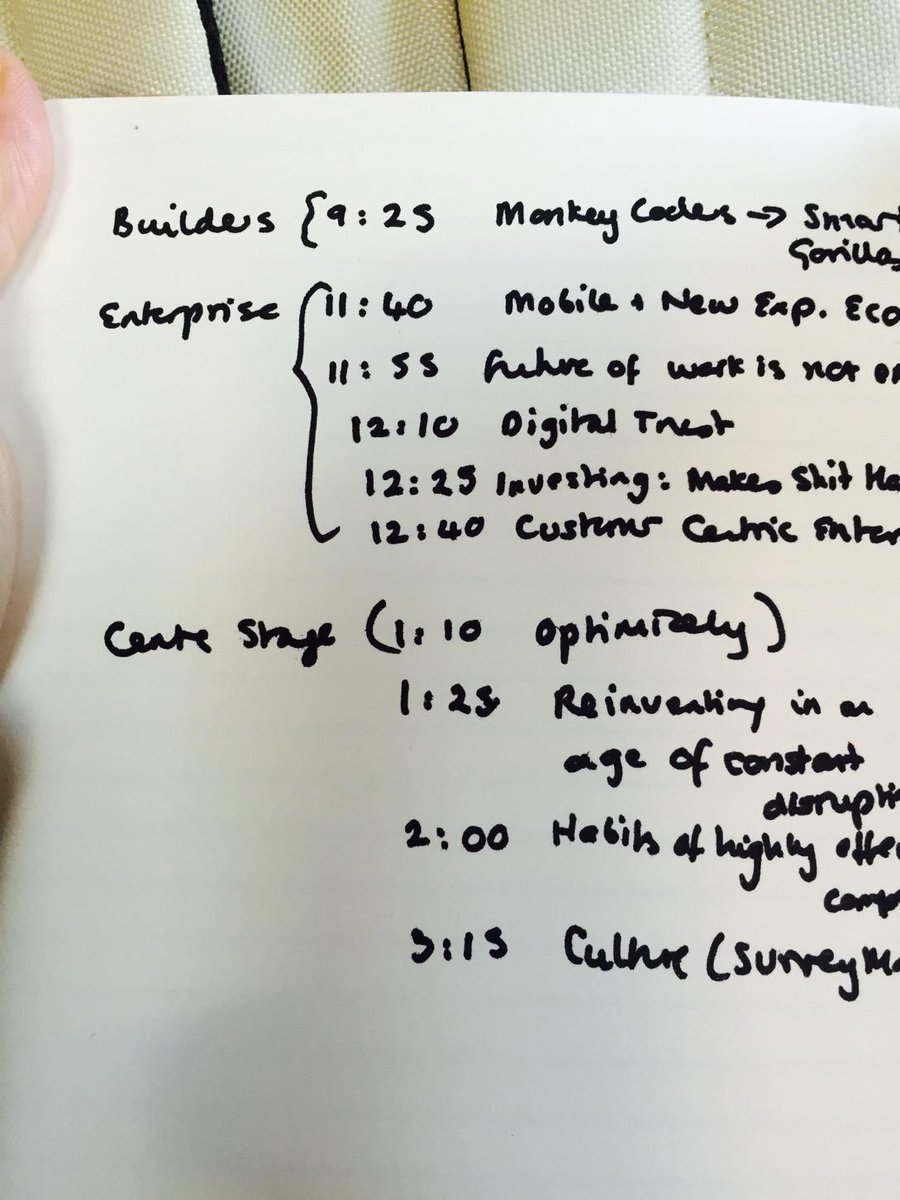 Builders { 9:25 Monkey Coders → Smart
Gorillas
Enterprise { 11:40 Mobile + New Exp. Eco
11:55 Future of work is not on
12:10 Digital Trust
12:25 Investing: Makes Shit Ha
12:40 Customer Centric Enter
Centre Stage (1:10 Optimizely)
1:25 Reinventing in an
age of constant
disrupti
2:00 Habits of highly effe
comp
3:15 Culture (SurveyMo